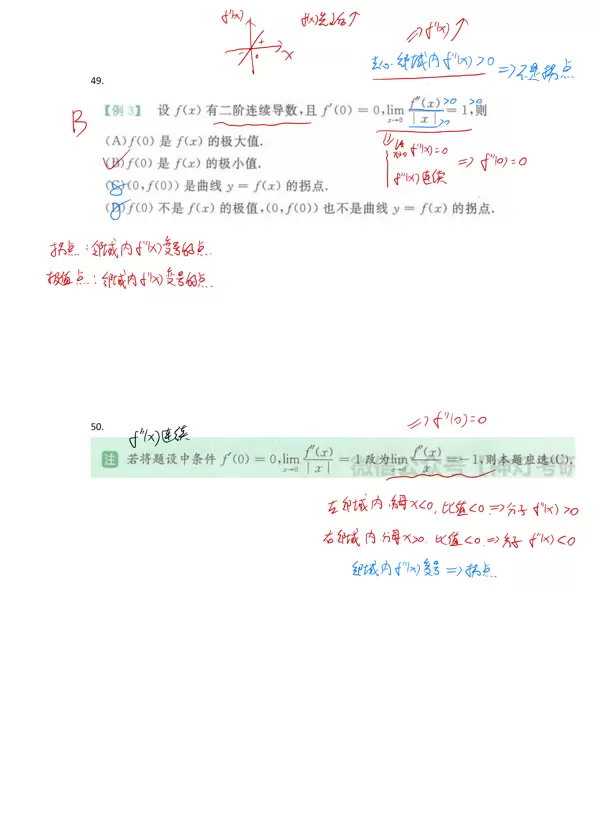 f'(x)
f(x)先↓后↑
⇒ f'(x) ↑
去心邻域内 f''(x)>0 ⇒ 不是拐点
x
49.
【例3】 设 f(x) 有二阶连续导数,且 f'(0) = 0, lim_{x→0} f''(x)/|x| = 1,则
>0 >0
>0
B
(A) f(0) 是 f(x) 的极大值.
(B) f(0) 是 f(x) 的极小值.
(C) (0, f(0)) 是曲线 y = f(x) 的拐点.
(D) f(0) 不是 f(x) 的极值,(0, f(0)) 也不是曲线 y = f(x) 的拐点.
lim_{x→0} f''(x)=0
f''(x)连续
⇒ f''(0)=0
拐点:邻域内 f''(x)变号的点.
极值点:邻域内 f'(x)变号的点.
50.
f''(x)连续
⇒ f''(0)=0
注 若将题设中条件 f'(0) = 0, lim_{x→0} f''(x)/|x| = 1 改为 lim_{x→0} f''(x)/x = −1,则本题应选(C).
左邻域内,分母x<0,比值<0 ⇒ 分子 f''(x)>0
右邻域内,分母x>0,比值<0 ⇒ 分子 f''(x)<0
邻域内 f''(x)变号 ⇒ 拐点.